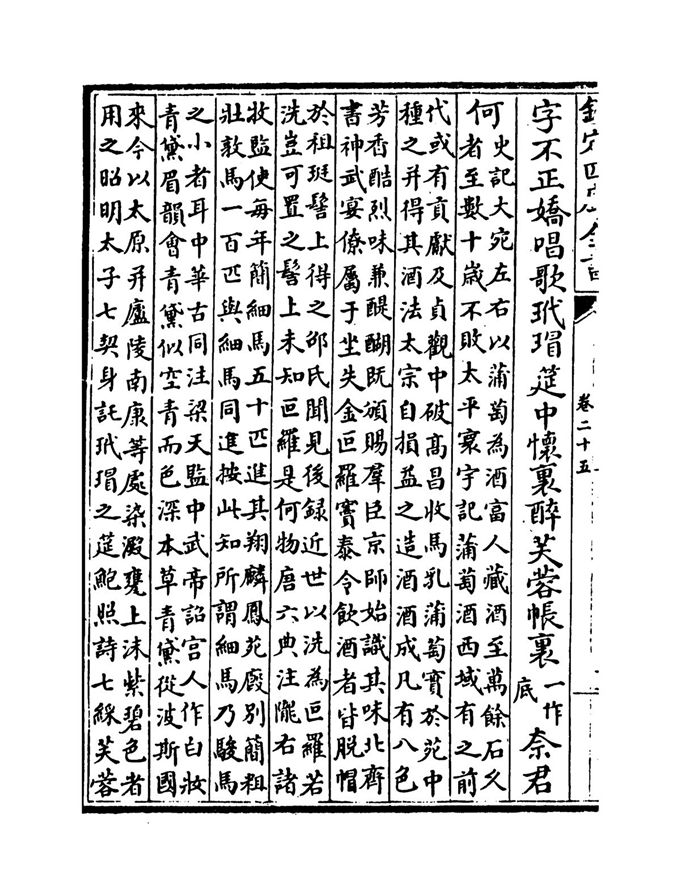 卷二十五
字不正嬌唱歌玳瑁筵中懷裏醉芙蓉帳裏一作底奈君
何
史記大宛左右以蒲萄為酒富人藏酒至萬餘石久
者至數十歲不敗太平寰宇記蒲萄酒西域有之前
代或有貢獻及貞觀中破高昌收馬乳蒲萄實於苑中
種之并得其酒法太宗自損益之造酒酒成凡有八色
芳香酷烈味兼醍醐既頒賜羣臣京師始識其味北齊
書神武宴僚屬于坐失金叵羅竇泰令飲酒者皆脫帽
於祖珽髻上得之邵氏聞見後録近世以洗為叵羅若
洗豈可置之髻上未知叵羅是何物唐六典注隴右諸
牧監使每年簡細馬五十匹進其翔麟鳳苑廄別簡粗
壯敦馬一百匹與細馬同進按此知所謂細馬乃駿馬
之小者耳中華古同注梁天監中武帝詔宫人作白妝
青黛眉韻會青黛似空青而色深本草青黛從波斯國
來今以太原并廬陵南康等處染澱甕上沫紫碧色者
用之昭明太子七契身託玳瑁之筵鮑照詩七綵芙蓉